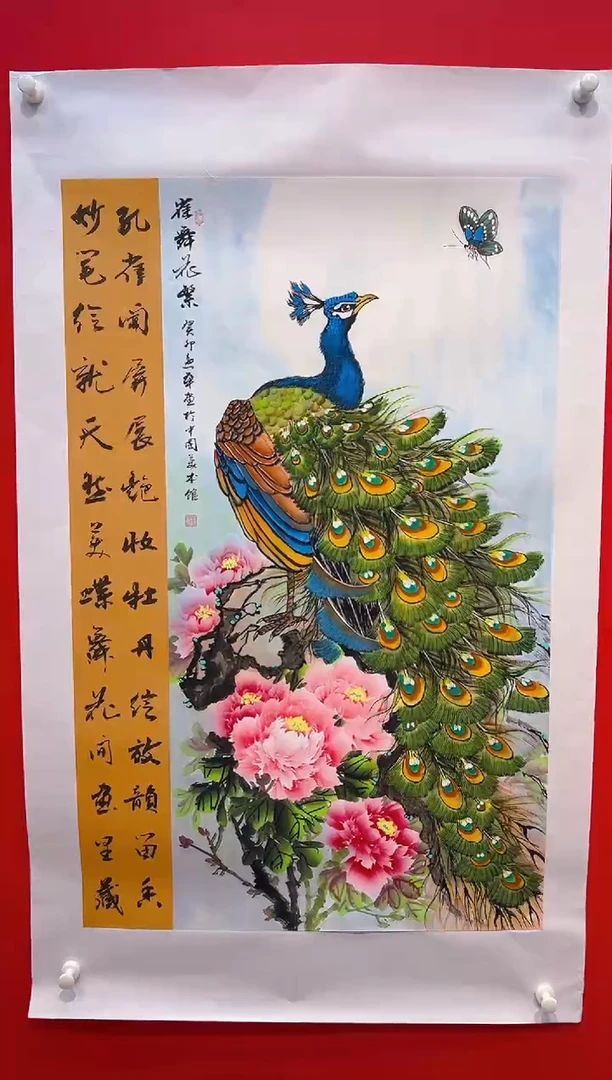 雀舞花繁
癸卯 画於中国美术馆
孔雀開屏展艳妆牡丹绽放韻留香
妙笔绘就天然美蝶舞花间画里藏